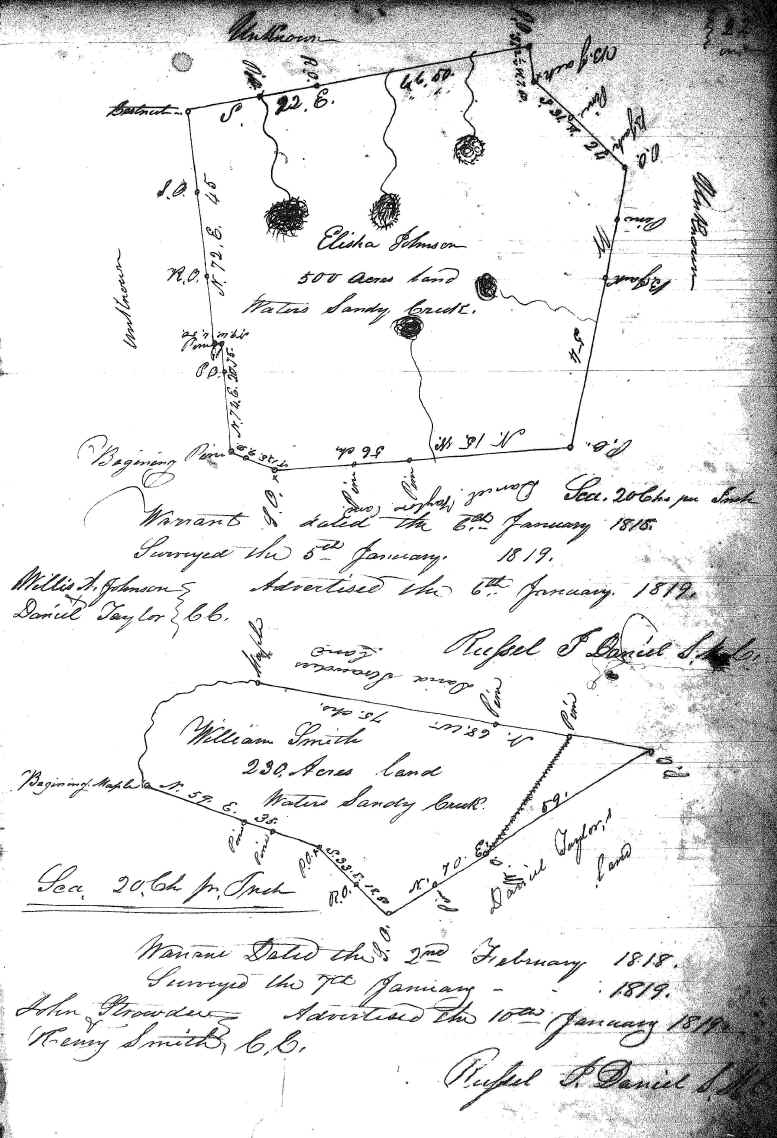 22
Unknown
Chestnut
R.O.
S. 22. E.
46.50.
B. Jack
Pine
B Jack
P.O.
S.O.
N. 72. E. 45
R.O.
Unknown
Unknown
Pine
B Jack
54
Elisha Johnson
500 Acres land
Waters Sandy Creek.
Pine
P.O.
N. 72. E. 20.75.
Begining Pine
S.O.
Pine
56 ch
Pine
N. 15. W.
P.O.
Daniel Taylor Land
Sca. 20 Chs per Inch
Warrant dated the 6th January 1818.
Surveyed the 5th January. 1819.
Willis A. Johnson
Daniel Taylor } C.C.
Advertised the 6th January. 1819.
Russel J Daniel S.
Maple
David Strawders Land
75. chs.
N. 68. W.
Pine
Pine
William Smith
230. Acres land
Waters Sandy Creek.
Begining Maple
N. 59. E. 35.
Pine
Pine
P.O.
S 33. E. 18
R.O.
S.O.
N. 70. E.
Pine
59.
Daniel Taylor,s land
Sca. 20. Ch pr. Inch
Warrant Dated the 2nd February 1818.
Surveyed the 7th January - 1819.
John Strowder
Henry Smith } C.C.
Advertised the 10th January 1819.
Russel J. Daniel S.